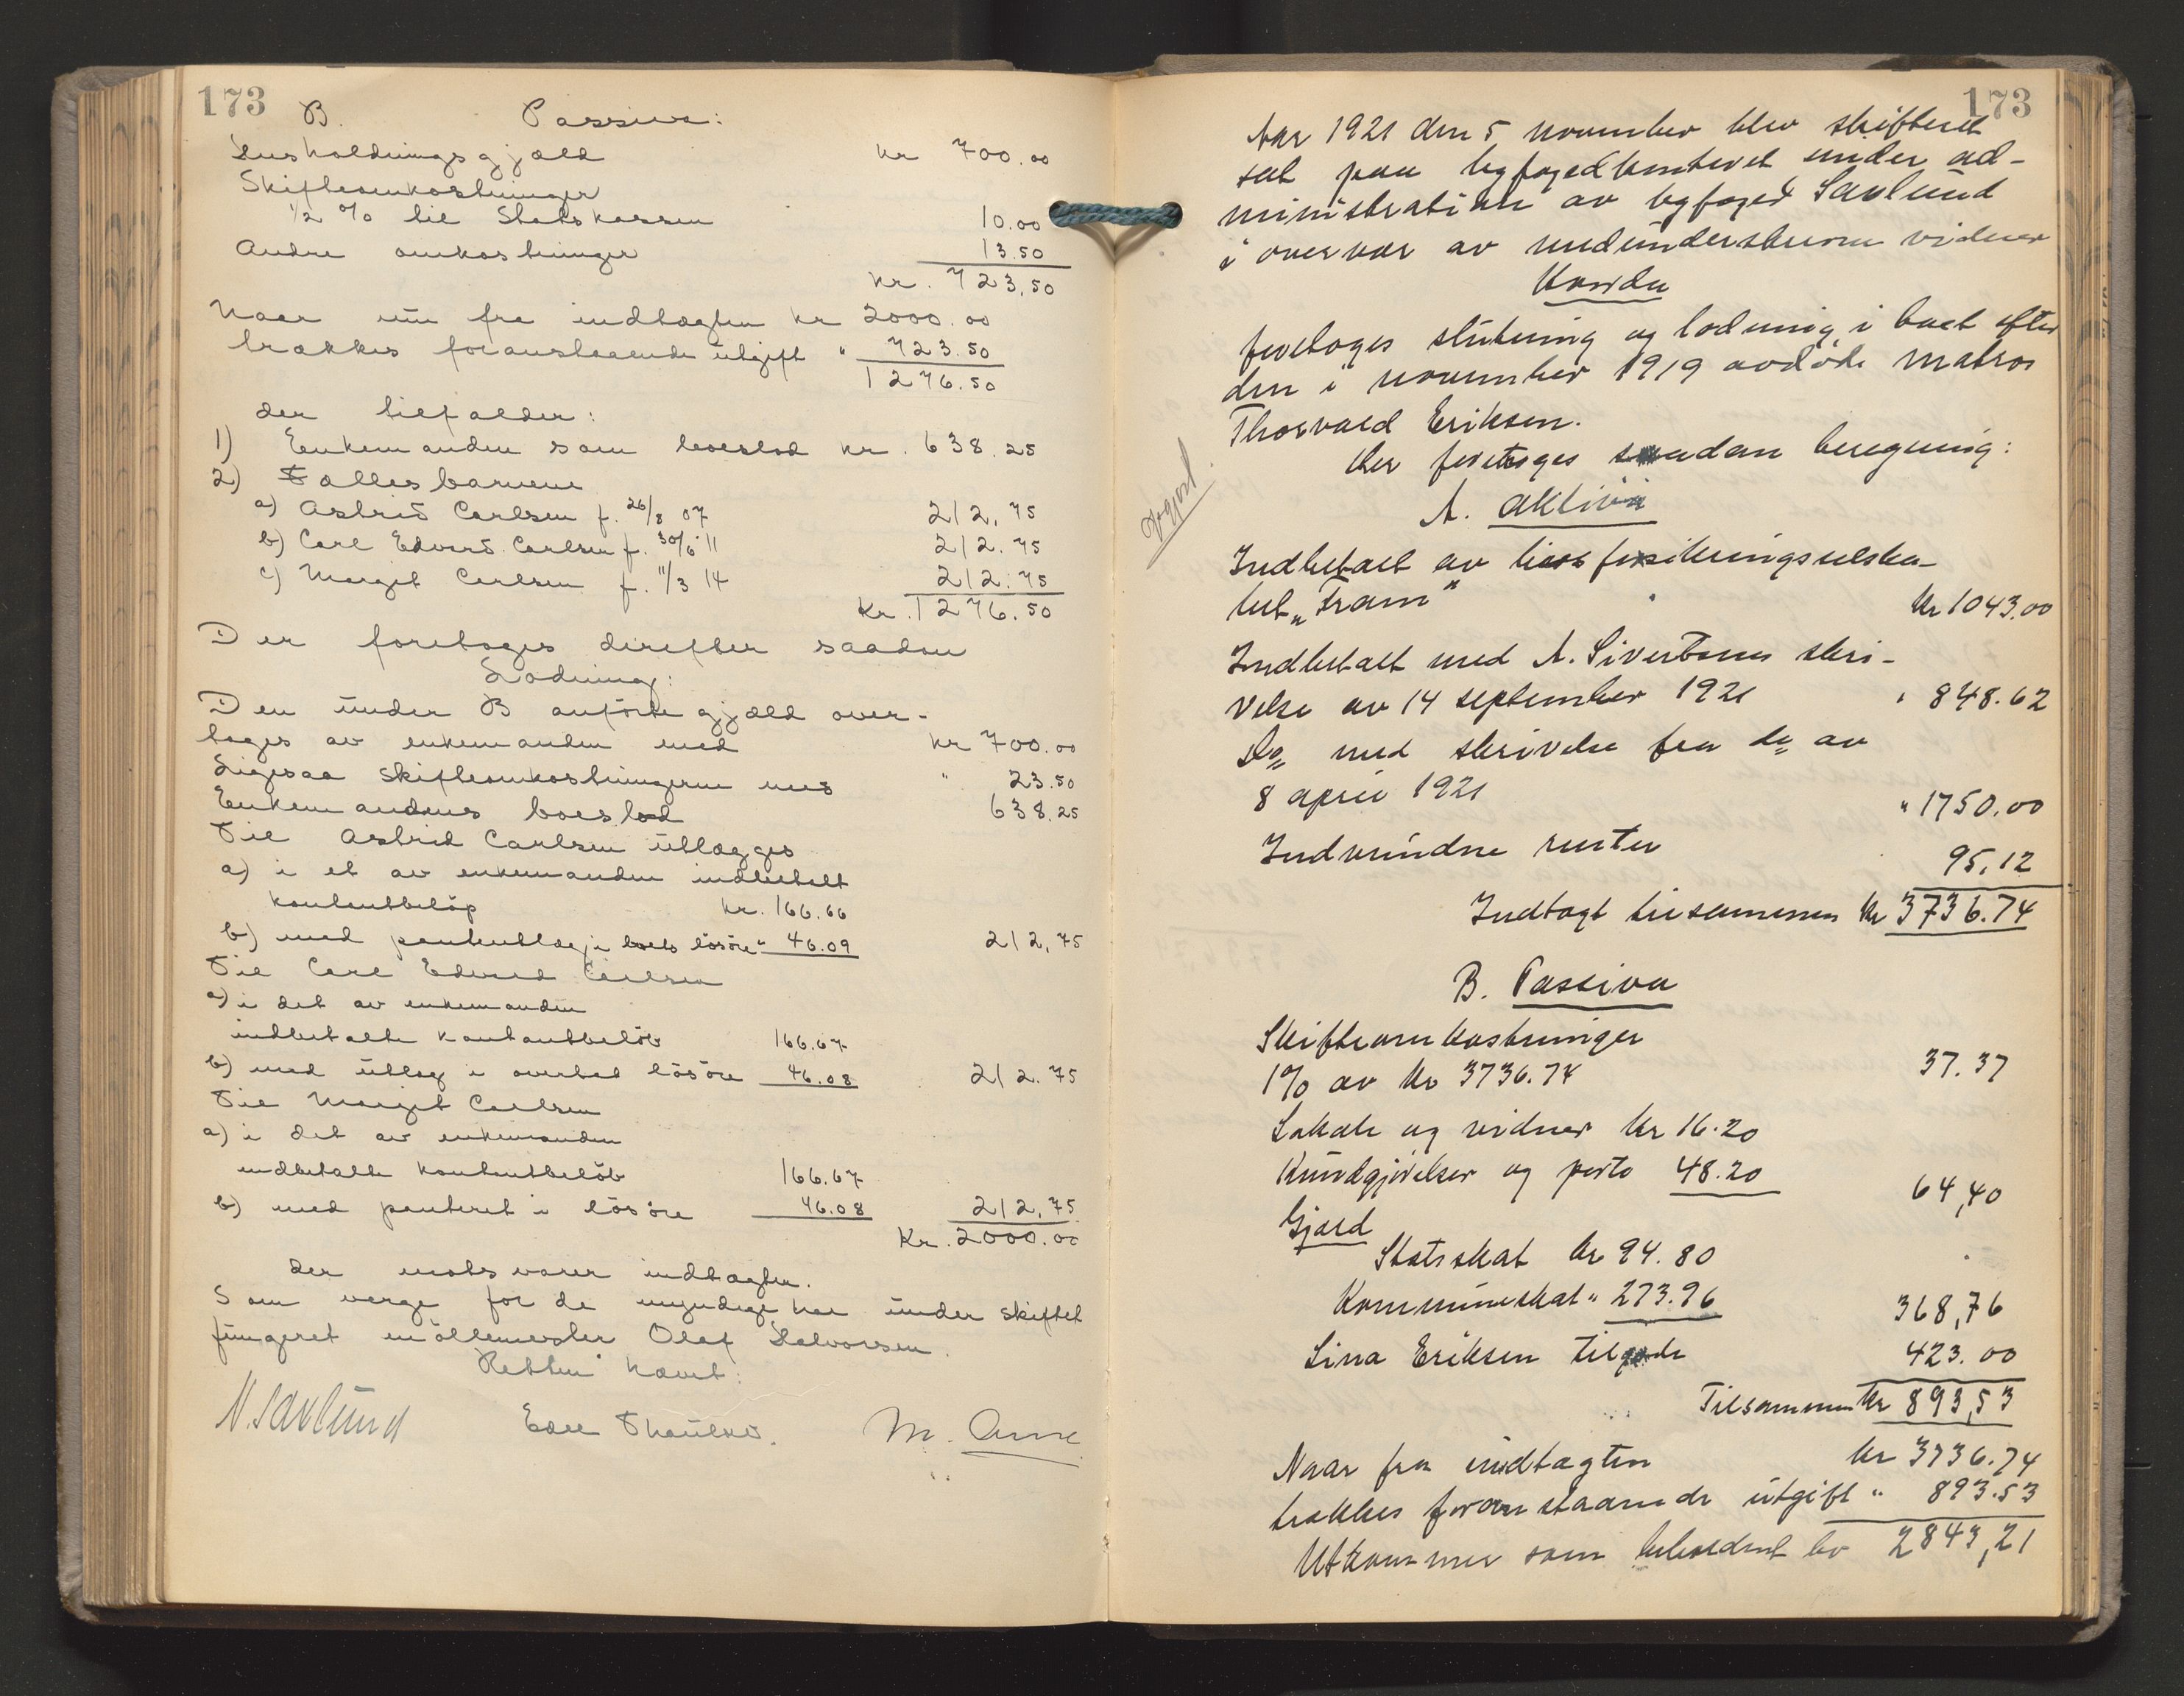 173
B. Passiva:
Husholdningsgjæld kr 700.00
Skifteomkostninger
1/2 % til Statskassen 10.00
Andre omkostninger 13.50
Kr. 723.50
Naar nu fra indtægten kr 2000.00
trækkes foranstaaende utgift " 723.50
1276.50
der tilfalder:
1) Enkemanden som boeslod kr. 638.25
2) Fællesbarnene
a) Astrid Carlsen f. 26/8 07 212,75
b) Carl Edvard Carlsen f. 30/6 11 212.75
c) Margit Carlsen f. 11/3 14 212.75
Kr. 1276.50
Der foretoges derefter saadan
Lodning:
Den under B anförte gjæld over-
tages av enkemanden med kr 700.00
Ligesaa skifteomkostningerne med " 23.50
Enkemandens boeslod 638.25
Til Astrid Carlsen utlægges
a) i et av enkemanden indbetalt
kontantbeløp kr. 166.66
b) med panteutlæg i boets lösöre " 46.09 212,75
Til Carl Edvard Carlsen
a) i det av enkemanden
indbetalte kontantbelöb 166.67
b) med utlæg i overtat lösöre 46.08 212.75
Til Margit Carlsen
a) i det av enkemanden
indbetalte kontantbelöb 166.67
b) med panteret i lösöre 46.08 212,75
Kr. 2000.00
der motsvarer indtægten.
Som verge for de umyndige har under skiftet
fungeret möllemester Olaf Halvorsen.
Retten hævet:
N. Savlund M. Arne
173
Aar 1921 den 5 november blev skifteret
sat paa byfogedkontoret under ad-
ministration av byfoged Savlund
i overvær av medunderskrevne vidner
Hvorda
foretoges slutning og lodning i boet efter
den i november 1919 avdöde matros
Thorvald Eriksen.
Der foretoges saadan beregning:
Avgjort.
A. Aktiva
Indbetalt av livsforsikringsselska-
bet "Fram" Kr 1043.00
Indbetalt med A. Sivertsens skri-
velse av 14 september 1921 " 848.62
Do med skrivelse fra do av
8 april 1921 " 1750.00
Indvundne renter 95,12
Indtægt tilsammen Kr 3736.74
B. Passiva
Skifteomkostninger
1% av Kr 3736.74 37.37
Lokale og vidner Kr 16.20
Kundgjörelser og porto 48.20 64,40
Gjæld
Statsskat Kr 94.80
Kommuneskat " 273.96 368,76
Lina Eriksen tilgode 423.00
Tilsammen Kr 893,53
Naar fra indtægten Kr 3736.74
trækkes foranstaaende utgift " 893.53
Utkommer som beholdent bo 2843,21